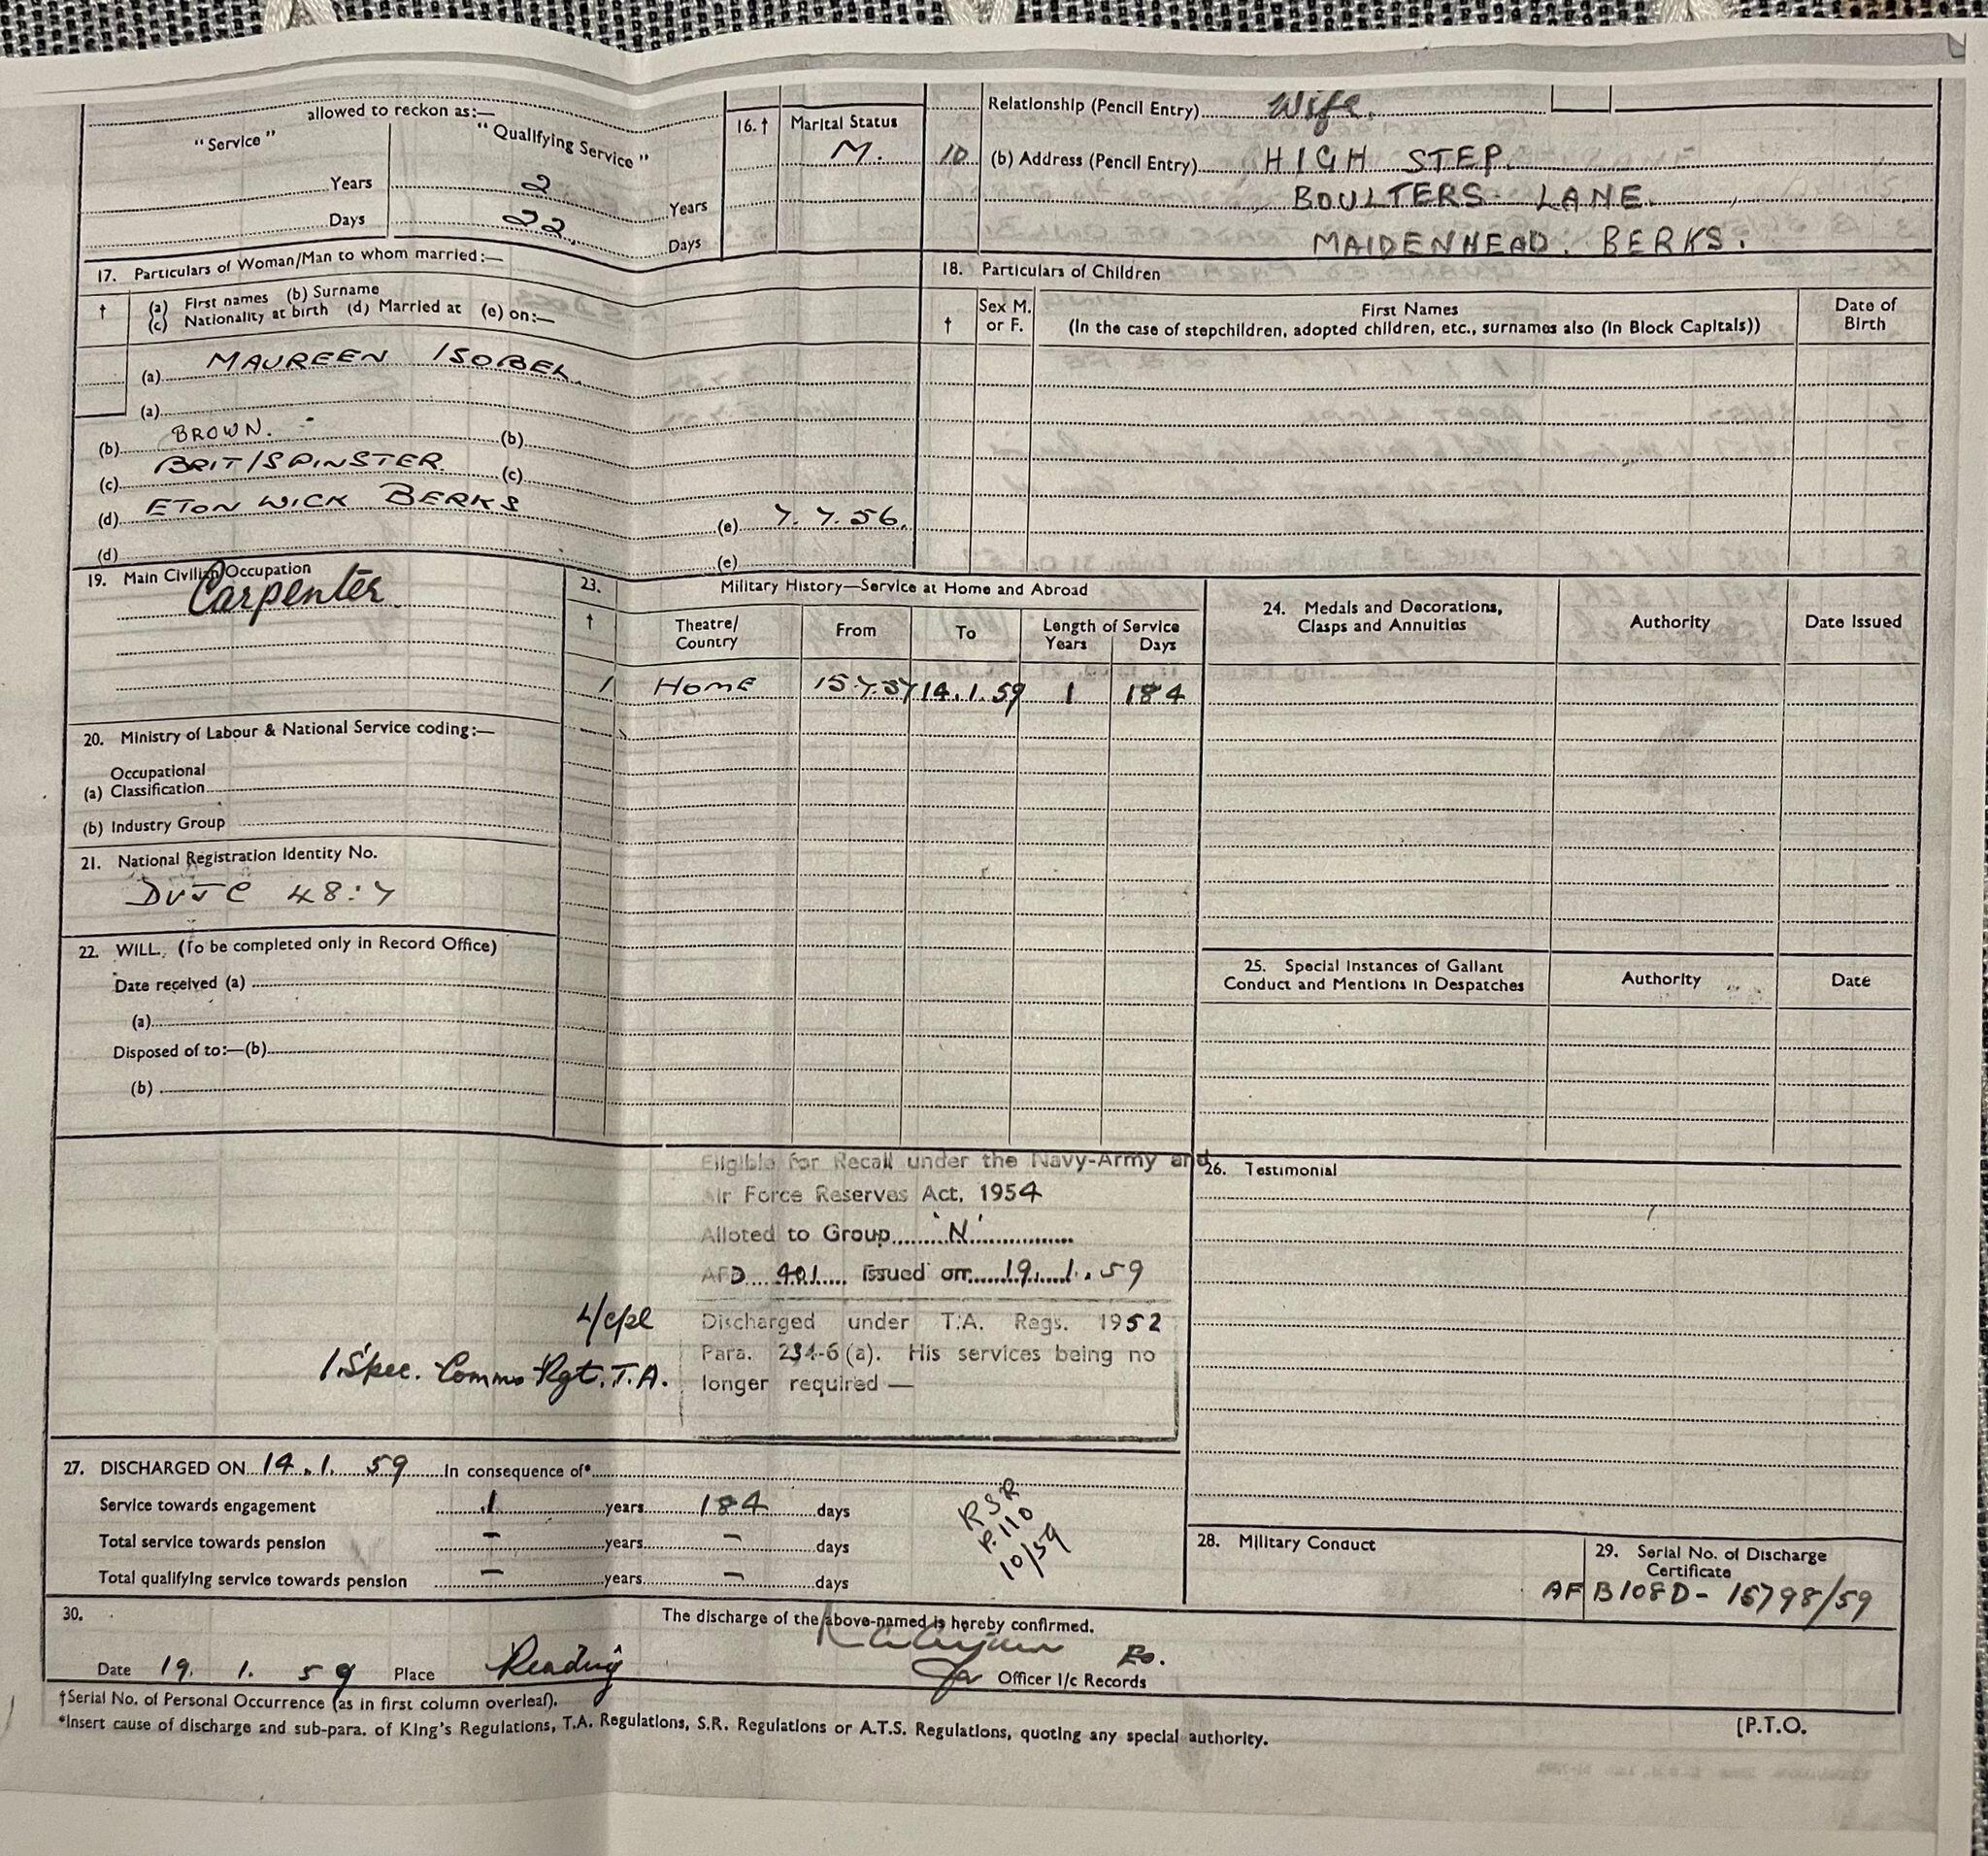 allowed to reckon as:—
"Service"
"Qualifying Service"
Years 2 Years
Days 22. Days
16.† Marital Status
M.
Relationship (Pencil Entry) Wife.
10 (b) Address (Pencil Entry) HIGH STEP.
BOULTERS LANE.
MAIDENHEAD. BERKS.
17. Particulars of Woman/Man to whom married:—
† (a) First names (b) Surname
(c) Nationality at birth (d) Married at (e) on:—
(a) MAUREEN ISOBEL.
(a)
(b) BROWN. (b)
(c) BRIT/SPINSTER (c)
(d) ETON WICK BERKS (e) 7.7.56.
(d) (e)
18. Particulars of Children
† Sex M. or F.
First Names
(In the case of stepchildren, adopted children, etc., surnames also (in Block Capitals))
Date of Birth
19. Main Civilian Occupation
Carpenter
20. Ministry of Labour & National Service coding:—
Occupational
(a) Classification
(b) Industry Group
21. National Registration Identity No.
DVJC 48:7
22. WILL. (To be completed only in Record Office)
Date received (a)
(a)
Disposed of to:—(b)
(b)
23. Military History—Service at Home and Abroad
† Theatre/Country From To Length of Service
Years Days
1 HOME 15.7.57 14.1.59 1 184
24. Medals and Decorations, Clasps and Annuities
Authority
Date Issued
25. Special Instances of Gallant Conduct and Mentions in Despatches
Authority
Date
Eligible for Recall under the Navy-Army and
Air Force Reserves Act, 1954
Alloted to Group 'N'
AFD 401 issued on 19.1.59
L/cpl
1.Spec. Comms Rgt. T.A.
Discharged under T.A. Regs. 1952
Para. 234-6(a). His services being no
longer required —
26. Testimonial
27. DISCHARGED ON 14.1.59 In consequence of*
Service towards engagement 1 years 184 days
Total service towards pension – years – days
Total qualifying service towards pension – years – days
RSR
P.110
10/59
28. Military Conduct
29. Serial No. of Discharge Certificate
AF B108D- 15798/59
30. The discharge of the above-named is hereby confirmed.
Date 19. 1. 59 Place Reading
for Officer i/c Records
†Serial No. of Personal Occurrence (as in first column overleaf).
*Insert cause of discharge and sub-para. of King's Regulations, T.A. Regulations, S.R. Regulations or A.T.S. Regulations, quoting any special authority.
[P.T.O.